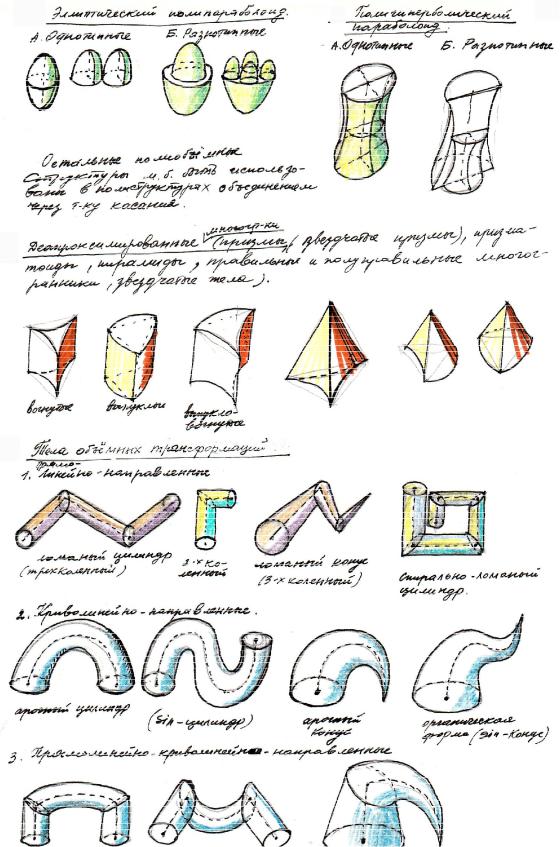 Эллиптический полипараболоид.
А. Однотипные Б. Разнотипные
Полигиперболический
параболоид.
А. Однотипные Б. Разнотипные
Остальные полиобъёмные
Структуры м.б. быть использо-
ваны в полиструктурах объединением
через т-ку касания.
многогр-ки
(призмы, звездчатые призмы), призма-
тоиды, пирамиды, правильные и полуправильные многог-
ранники, звездчатые тела).
вогнутые
выпуклые
выпукло-
вогнутые
Тела объёмных трансформаций...
прямо-
1. линейно-направленные
ломаный цилиндр
(трехколенный)
2-х ко-
ленный
ломаный конус
(3-х коленный)
спирально-ломаный
цилиндр.
2. Криволинейно-направленные.
арочный цилиндр
(Sin-цилиндр)
арочный
конус
органическая
форма (Sin-конус)
3. Прямолинейно-криволинейно-направленные